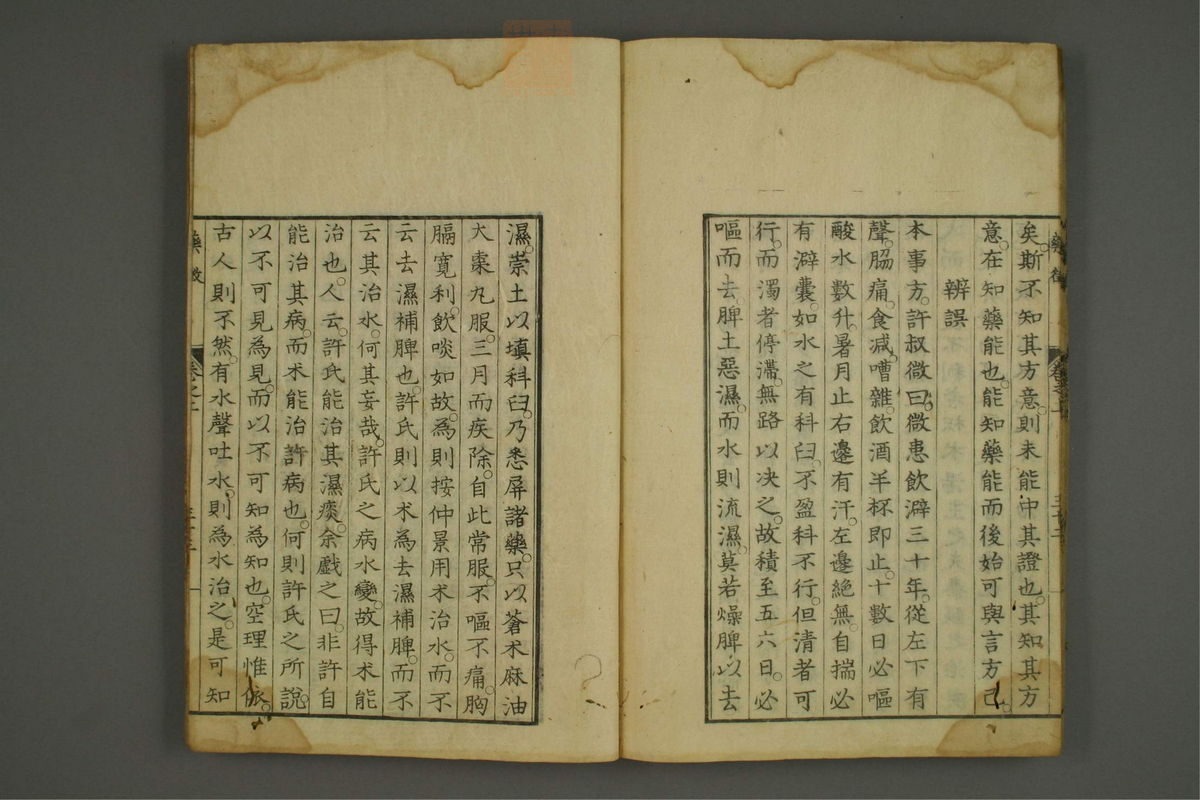 矣。斯不知其方意。則未能中其證也。其知其方
意。在知藥能也。能知藥能而後始可與言方已。
辨誤
本事方。許叔微曰。微患飲澼三十年。從左下有
聲。脇痛。食減嘈雜。飲酒半杯即止。十數日必嘔
酸水數升。暑月止右邊有汗。左邊絕無。自揣必
有澼囊。如水之有科臼。不盈科不行。但清者可
行。而濁者停滯。無路以决之。故積至五六日。必
嘔而去。脾土惡濕。而水則流濕。莫若燥脾以去
濕。崇土以填科臼。乃悉屏諸藥。只以蒼朮麻油
大棗丸服。三月而疾除。自此常服。不嘔不痛。胸
膈寬利。飲啖如故。為則按仲景用朮治水。而不
云去濕補脾也。許氏則以朮為去濕補脾。而不
云其治水。何其妄哉。許氏之病水變。故得朮能
治也。人云。許氏能治其濕痰。余戲之曰。非許自
能治其病。而朮能治許病也。何則許氏之所說。
以不可見為見。而以不可知為知也。空理惟依。
古人則不然。有水聲吐水。則為水治之。是可知